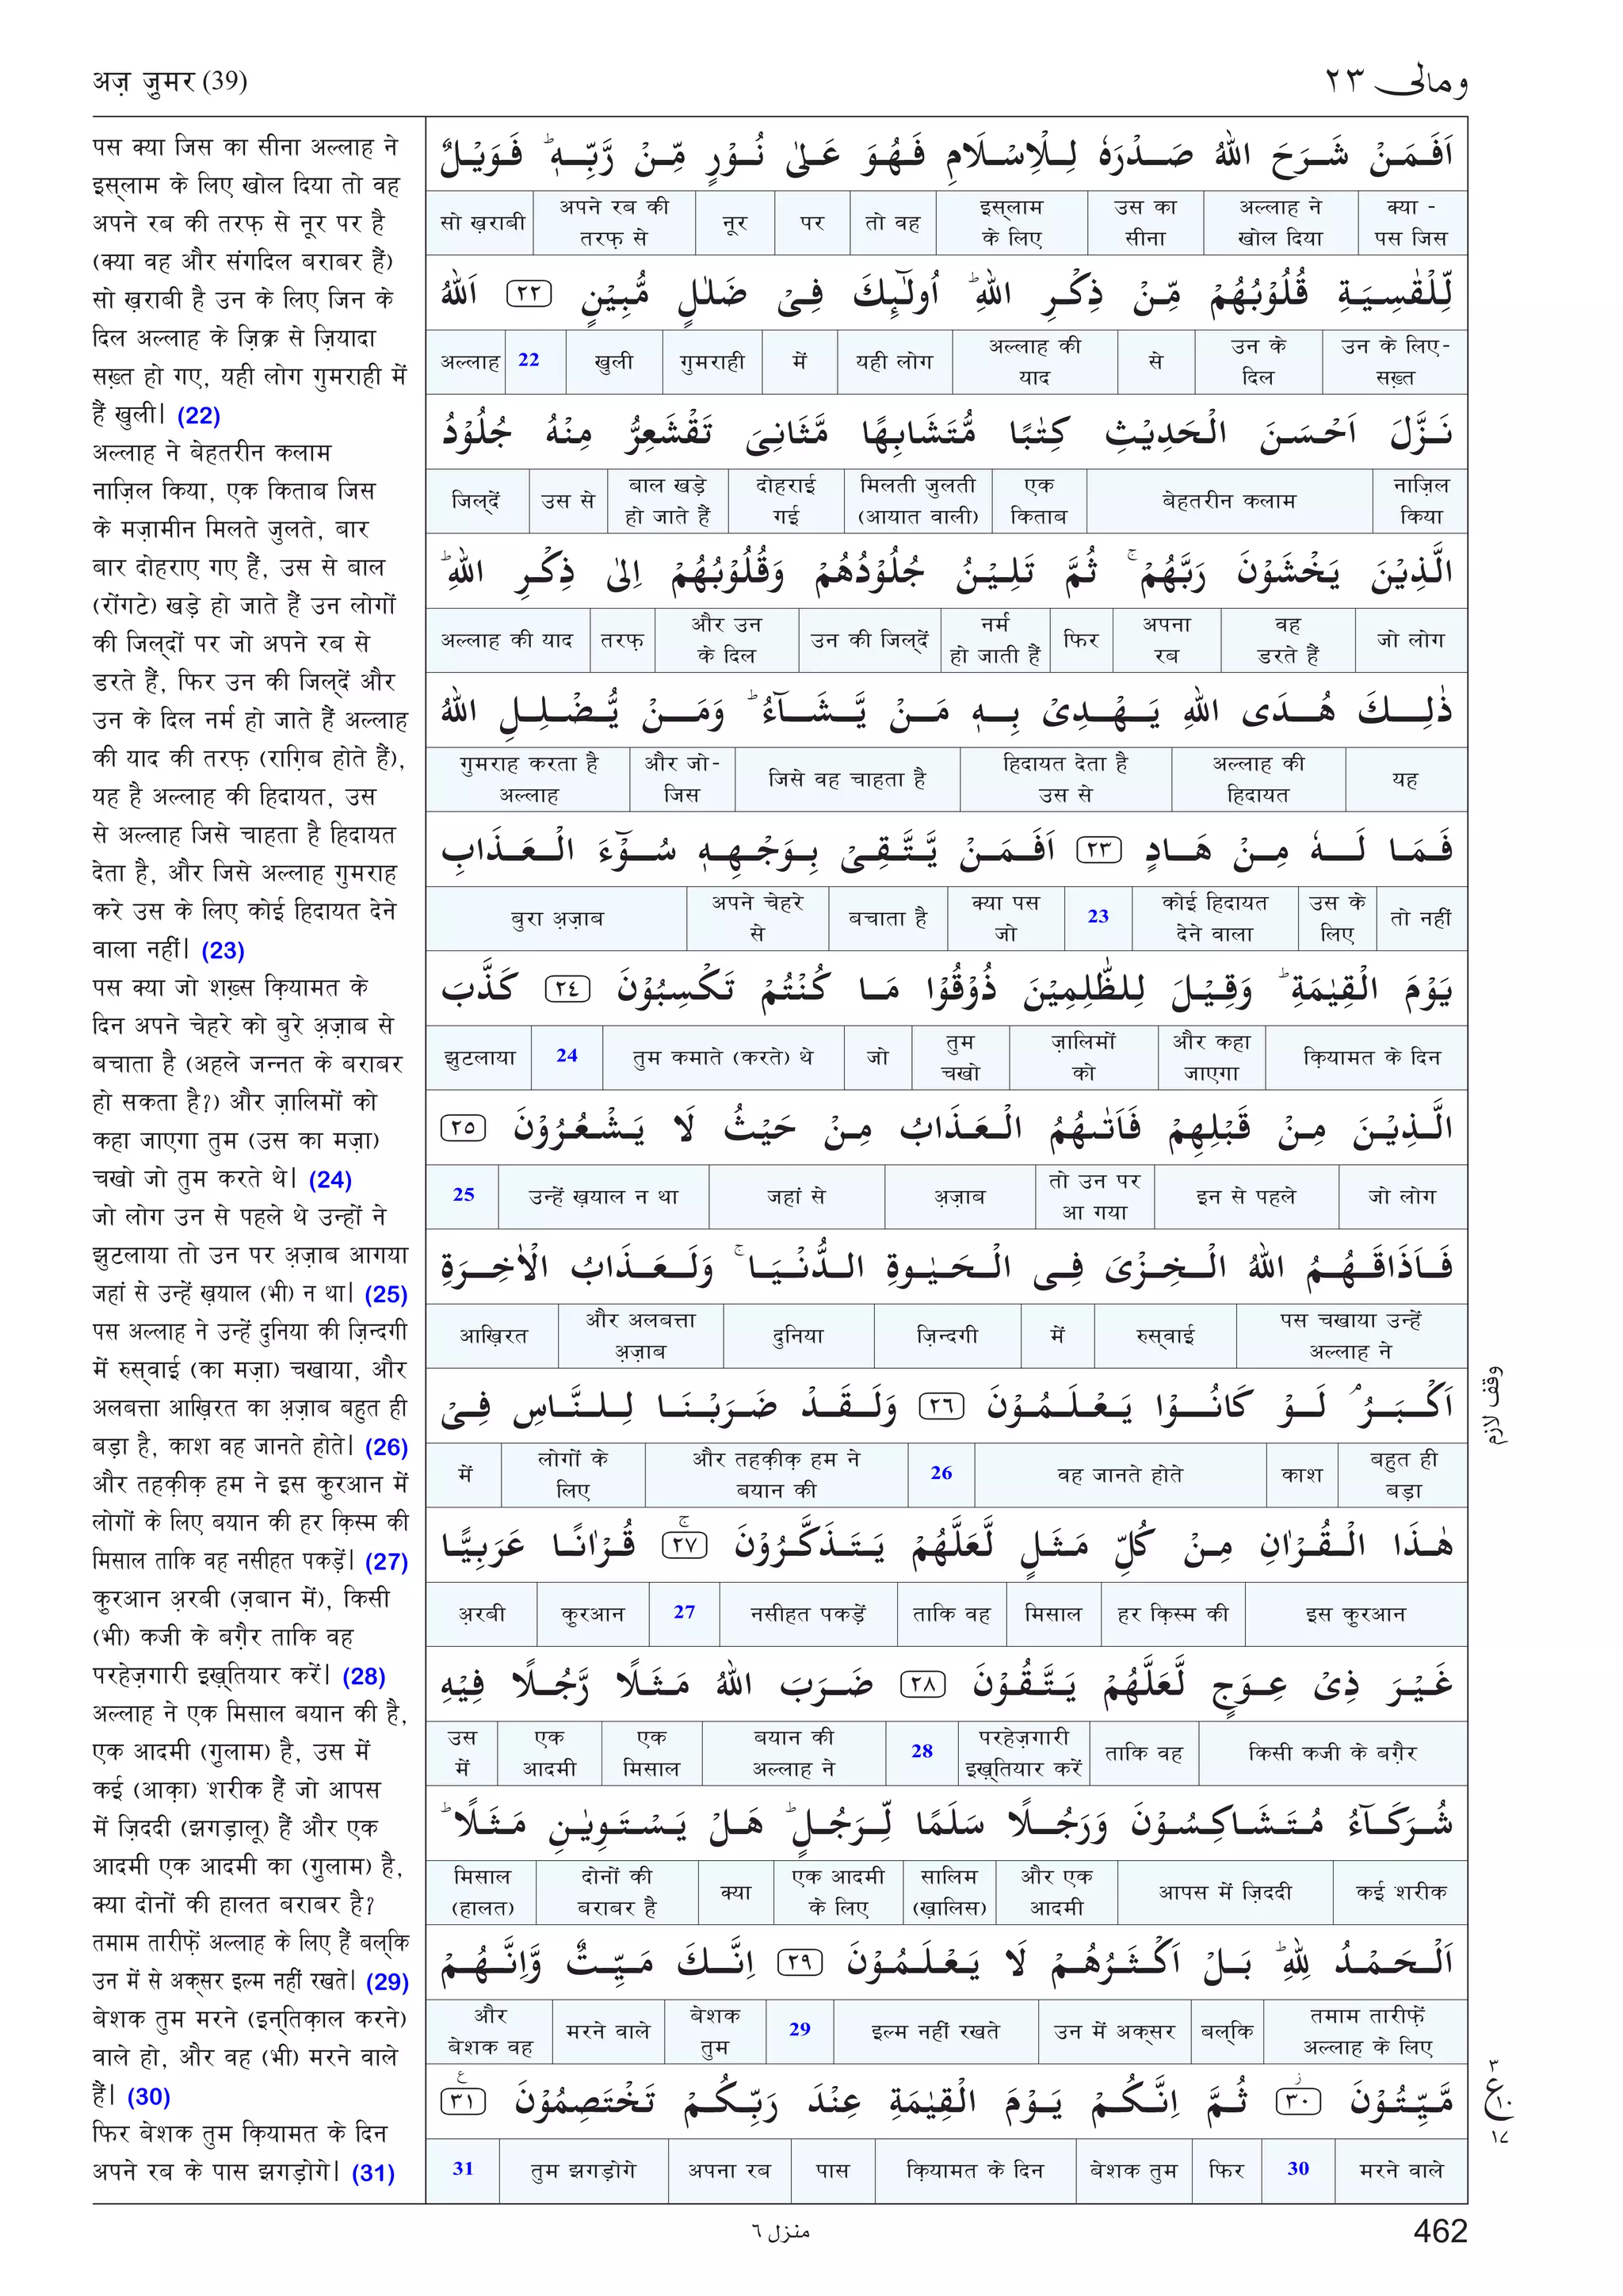 अज़ ज़ुमर (39)
ومالی ٢٣
पस क्या जिस का सीना अल्लाह ने
इस्लाम के लिए खोल दिया तो वह
अपने रब की तरफ़ से नूर पर है
(क्या वह और संगदिल बराबर हैं)
सो ख़राबी है उन के लिए जिन के
दिल अल्लाह के ज़िक्र से ज़ियादा
सख़्त हो गए, यही लोग गुमराही में
हैं खुली। (22)
अल्लाह ने बेहतरीन कलाम
नाज़िल किया, एक किताब जिस
के मज़ामीन मिलते जुलते, बार
बार दोहराए गए हैं, उस से बाल
(रोंगटे) खड़े हो जाते हैं उन लोगों
की जिल्दों पर जो अपने रब से
डरते हैं, फिर उन की जिल्दें और
उन के दिल नर्म हो जाते हैं अल्लाह
की याद की तरफ़ (राग़िब होते हैं),
यह है अल्लाह की हिदायत, उस
से अल्लाह जिसे चाहता है हिदायत
देता है, और जिसे अल्लाह गुमराह
करे उस के लिए कोई हिदायत देने
वाला नहीं। (23)
पस क्या जो शख़्स क़ियामत के
दिन अपने चेहरे को बुरे अ़ज़ाब से
बचाता है (अहले जन्नत के बराबर
हो सकता है?) और ज़ालिमों को
कहा जाएगा तुम (उस का मज़ा)
चखो जो तुम करते थे। (24)
जो लोग उन से पहले थे उन्हों ने
झुटलाया तो उन पर अ़ज़ाब आगया
जहां से उन्हें ख़याल (भी) न था। (25)
पस अल्लाह ने उन्हें दुनिया की ज़िन्दगी
में रुस्वाई (का मज़ा) चखाया, और
अलबत्ता आख़िरत का अ़ज़ाब बहुत ही
बड़ा है, काश वह जानते होते। (26)
और तहक़ीक़ हम ने इस क़ुरआन में
लोगों के लिए बयान की हर क़िस्म की
मिसाल ताकि वह नसीहत पकड़ें। (27)
क़ुरआन अ़रबी (ज़बान में), किसी
(भी) कजी के बग़ैर ताकि वह
परहेज़गारी इख़्तियार करें। (28)
अल्लाह ने एक मिसाल बयान की है,
एक आदमी (ग़ुलाम) है, उस में
कई (आक़ा) शरीक हैं जो आपस
में ज़िददी (झगड़ालू) हैं और एक
आदमी एक आदमी का (ग़ुलाम) है,
क्या दोनों की हालत बराबर है?
तमाम तारीफ़ें अल्लाह के लिए हैं बल्कि
उन में से अक्सर इल्म नहीं रखते। (29)
बेशक तुम मरने (इन्तिक़ाल करने)
वाले हो, और वह (भी) मरने वाले
हैं। (30)
फिर बेशक तुम क़ियामत के दिन
अपने रब के पास झगड़ोगे। (31)
اَفَمَنْ شَرَحَ اللهُ صَدْرَهٗ لِلْاِسْلَامِ فَهُوَ عَلٰى نُوْرٍ مِّنْ رَّبِّهٖ ؕ فَوَيْلٌ
क्या - पस जिस | अल्लाह ने खोल दिया | उस का सीना | इस्लाम के लिए | तो वह | पर | नूर | अपने रब की तरफ़ से | सो ख़राबी
لِّلْقٰسِيَةِ قُلُوْبُهُمْ مِّنْ ذِكْرِ اللهِ ؕ اُولٰٓئِكَ فِیْ ضَلٰلٍ مُّبِيْنٍ ٢٢ اَللهُ
उन के लिए- सख़्त | उन के दिल | से | अल्लाह की याद | यही लोग | में | गुमराही | खुली | 22 | अल्लाह
نَزَّلَ اَحْسَنَ الْحَدِيْثِ كِتٰبًا مُّتَشَابِهًا مَّثَانِیَ تَقْشَعِرُّ مِنْهُ جُلُوْدُ
नाज़िल किया | बेहतरीन कलाम | एक किताब | मिलती जुलती (आयात वाली) | दोहराई गई | बाल खड़े हो जाते हैं | उस से | जिल्दें
الَّذِيْنَ يَخْشَوْنَ رَبَّهُمْ ۚ ثُمَّ تَلِيْنُ جُلُوْدُهُمْ وَقُلُوْبُهُمْ اِلٰى ذِكْرِ اللهِ ؕ
जो लोग | वह डरते हैं | अपना रब | फिर | नर्म हो जाती हैं | उन की जिल्दें | और उन के दिल | तरफ़ | अल्लाह की याद
ذٰلِكَ هُدَى اللهِ يَهْدِیْ بِهٖ مَنْ يَّشَآءُ ؕ وَمَنْ يُّضْلِلِ اللهُ
यह | अल्लाह की हिदायत | हिदायत देता है उस से | जिसे वह चाहता है | और जो- जिस | गुमराह करता है अल्लाह
فَمَا لَهٗ مِنْ هَادٍ ٢٣ اَفَمَنْ يَّتَّقِیْ بِوَجْهِهٖ سُوْٓءَ الْعَذَابِ
तो नहीं | उस के लिए | कोई हिदायत देने वाला | 23 | क्या पस जो | बचाता है | अपने चेहरे से | बुरा अ़ज़ाब
يَوْمَ الْقِيٰمَةِ ؕ وَقِيْلَ لِلظّٰلِمِيْنَ ذُوْقُوْا مَا كُنْتُمْ تَكْسِبُوْنَ ٢٤ كَذَّبَ
क़ियामत के दिन | और कहा जाएगा | ज़ालिमों को | तुम चखो | जो | तुम कमाते (करते) थे | 24 | झुटलाया
الَّذِيْنَ مِنْ قَبْلِهِمْ فَاَتٰىهُمُ الْعَذَابُ مِنْ حَيْثُ لَا يَشْعُرُوْنَ ٢٥
जो लोग | इन से पहले | तो उन पर आ गया | अ़ज़ाब | जहां से | उन्हें ख़याल न था | 25
فَاَذَاقَهُمُ اللهُ الْخِزْیَ فِی الْحَيٰوةِ الدُّنْيَا ۚ وَلَعَذَابُ الْاٰخِرَةِ
पस चखाया उन्हें अल्लाह ने | रुस्वाई | में | ज़िन्दगी | दुनिया | और अलबत्ता अ़ज़ाब | आख़िरत
اَكْبَرُ ۘ لَوْ كَانُوْا يَعْلَمُوْنَ ٢٦ وَلَقَدْ ضَرَبْنَا لِلنَّاسِ فِیْ
बहुत ही बड़ा | काश | वह जानते होते | 26 | और तहक़ीक़ हम ने बयान की | लोगों के लिए | में
هٰذَا الْقُرْاٰنِ مِنْ كُلِّ مَثَلٍ لَّعَلَّهُمْ يَتَذَكَّرُوْنَ ٢٧ ۚ قُرْاٰنًا عَرَبِيًّا
इस क़ुरआन | हर क़िस्म की | मिसाल | ताकि वह | नसीहत पकड़ें | 27 | क़ुरआन | अ़रबी
غَيْرَ ذِیْ عِوَجٍ لَّعَلَّهُمْ يَتَّقُوْنَ ٢٨ ضَرَبَ اللهُ مَثَلًا رَّجُلًا فِيْهِ
किसी कजी के बग़ैर | ताकि वह | परहेज़गारी इख़्तियार करें | 28 | बयान की अल्लाह ने | एक मिसाल | एक आदमी | उस में
شُرَكَآءُ مُتَشَاكِسُوْنَ وَرَجُلًا سَلَمًا لِّرَجُلٍ ؕ هَلْ يَسْتَوِيٰنِ مَثَلًا ؕ
कई शरीक | आपस में ज़िददी | और एक आदमी | सालिम (ख़ालिस) | एक आदमी के लिए | क्या | दोनों की बराबर है | मिसाल (हालत)
اَلْحَمْدُ لِلّٰهِ ؕ بَلْ اَكْثَرُهُمْ لَا يَعْلَمُوْنَ ٢٩ اِنَّكَ مَيِّتٌ وَّاِنَّهُمْ
तमाम तारीफ़ें अल्लाह के लिए | बल्कि | उन में अक्सर | इल्म नहीं रखते | 29 | बेशक तुम | मरने वाले | और बेशक वह
مَّيِّتُوْنَ ٣٠ ز ثُمَّ اِنَّكُمْ يَوْمَ الْقِيٰمَةِ عِنْدَ رَبِّكُمْ تَخْتَصِمُوْنَ ٣١ ع
मरने वाले | 30 | फिर | बेशक तुम | क़ियामत के दिन | पास | अपना रब | तुम झगड़ोगे | 31
وقف لازم
٣
ع ١٠
١٧
منزل ٦
462